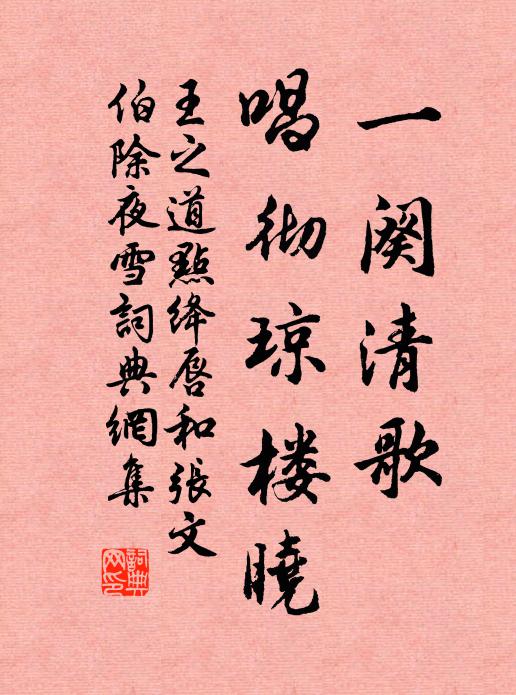 一阕清歌
唱彻琼楼曉
王之道點绛唇和張文
伯除夜雪詞典網集
詞典
网印